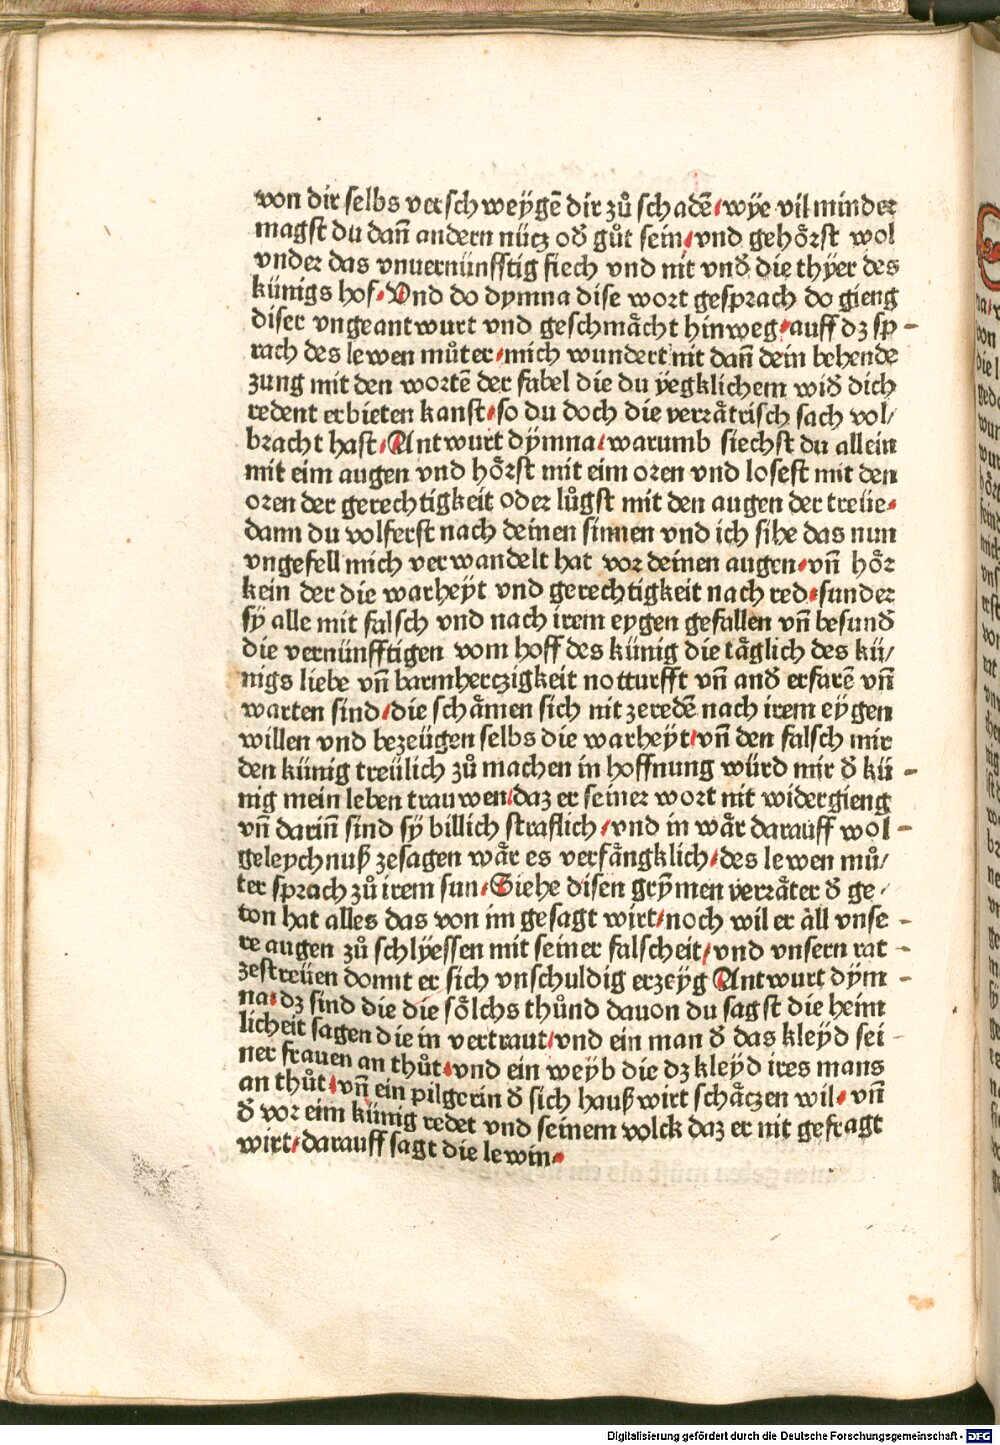 von dir selbs verschweygē dir zů schadē/wye vil minder
magst du dañ andern nücz oď gůt sein/vnd gehőrst wol
vnder das vnuernünfftig fiech vnd nit vnď die thÿer des
künigs hof/Vnd do dymna dise wort gesprach do gieng
diser vngeantwurt vnd geschmåcht hinweg/auff dz sp-
rach des lewen můter/mich wundert nit dañ dein behende
zung mit den wortē der fabel die du ÿegklichem wiď dich
redent erbieten kanst/so du doch die verråtrisch sach vol/
bracht hast/Antwurt dÿmna/warumb siechst du allein
mit eim augen vnd hőrst mit eim oren vnd losest mit den
oren der gerechtigkeit oder lůgst mit den augen der treüe/
dann du volferst nach deinen sinnen vnd ich sihe das nun
vngefell mich verwandelt hat vor deinen augen/vñ hőr
kein der die warheÿt vnd gerechtigkeit nach red/sunder
sÿ alle mit falsch vnd nach irem eygen gefallen vñ besunď
die vernünfftigen vom hoff des künig die tåglich des kü/
nigs liebe vñ barmherczigkeit notturfft vñ anď erfarē vñ
warten sind/die schåmen sich nit zeredē nach irem eygen
willen vnd bezeügen selbs die warheÿt/vñ den falsch mir
den künig treülich zů machen in hoffnung würd mir ď kü-
nig mein leben trauwen/daz er seiner wort nit widergieng
vñ dariñ sind sÿ billich straflich/vnd in wår darauff wol-
geleychnuß zesagen wår es verfångklich/des lewen mů/
ter sprach zů irem sun/Siehe disen grÿmen verråter ď ge/
ton hat alles das von im gesagt wirt/noch wil er all vnse-
re augen zů schlÿessen mit seiner falscheit/vnd vnsern rat-
zestreüen domit er sich vnschuldig erzeyg Antwurt dÿm-
na/dz sind die die sőlchs thůnd dauon du sagst die heim
licheit sagen die in vertraut/vnd ein man ď das kleÿd sei-
ner frauen an thůt/vnd ein weÿb die dz kleÿd ires mans
an thůt/vñ ein pilgerin ď sich haußwirt schåczen wil/vñ
ď vor eim künig redet vnd seinem volck daz er nit gefragt
wirt/darauff sagt die lewin/
Digitalisierung gefördert durch die Deutsche Forschungsgemeinschaft - DFG